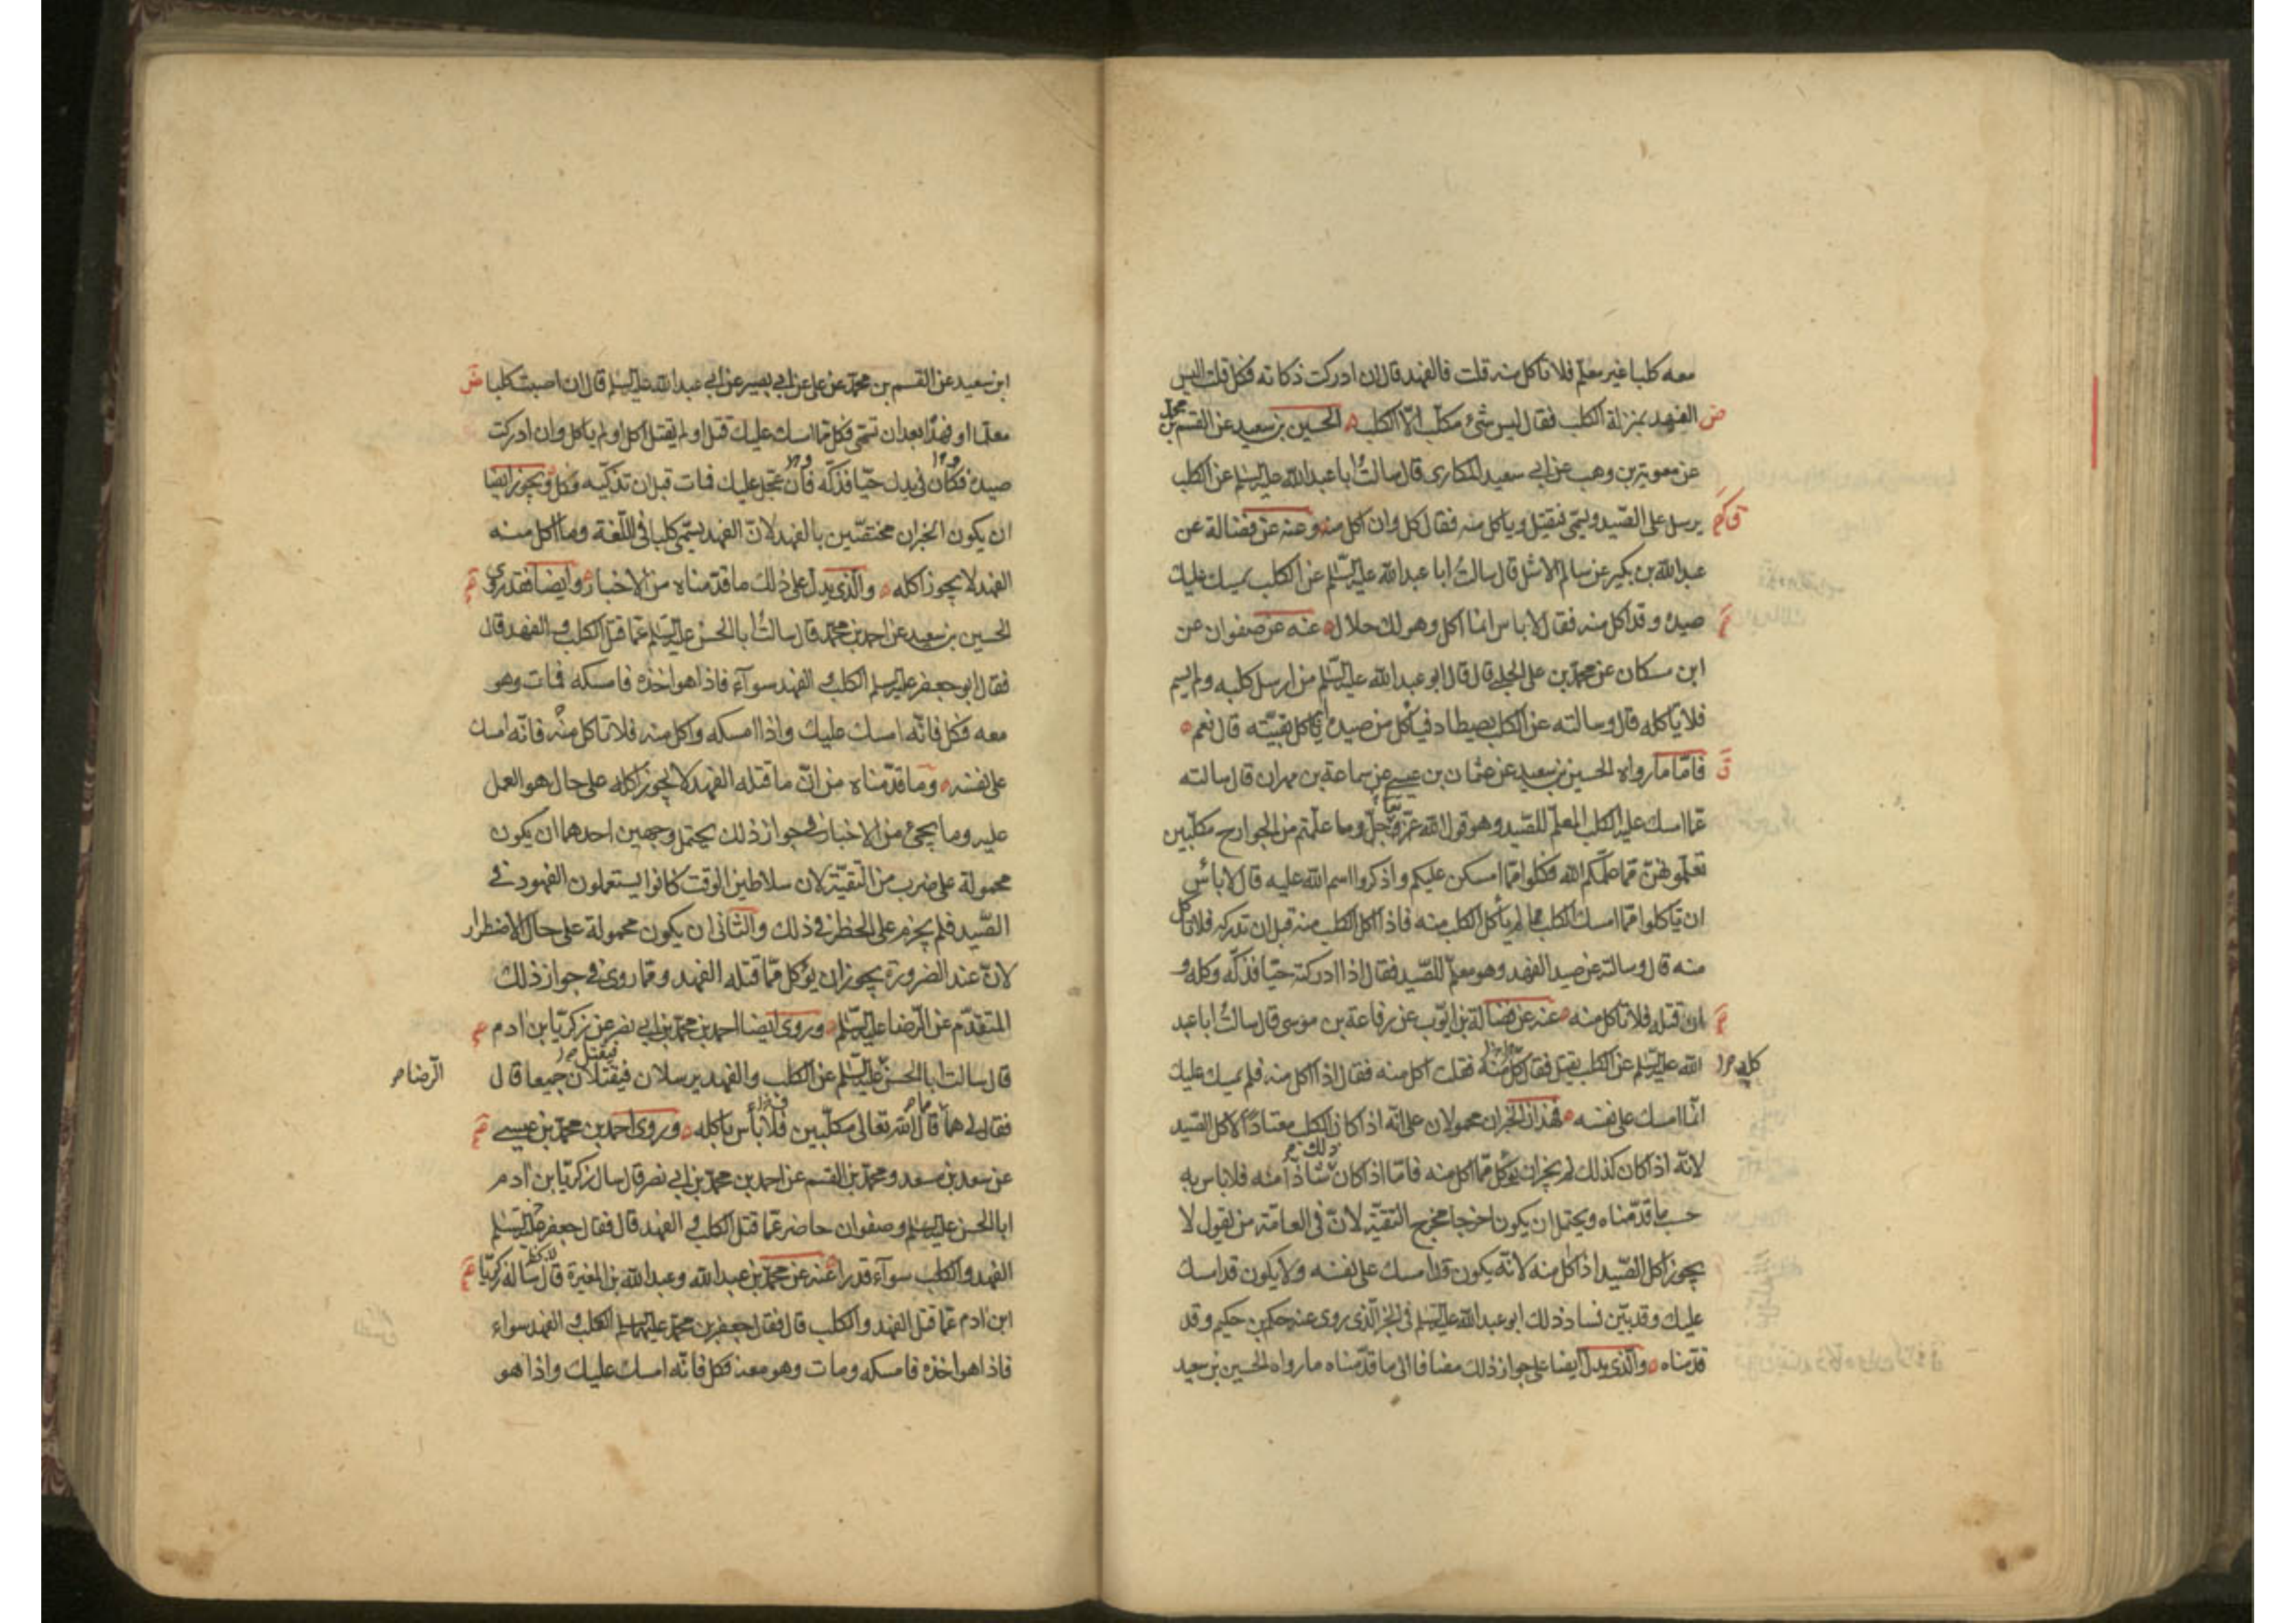 معه كلبا غير معلّم فلا تاكل منه قلت فالفهد قال ان ادركت ذكاته فكل قلت اليس
ض الفهد بمنزلة الكلب فقال ليس شئ مكلّب الّا الكلب الحسين بن سعيد عن القسم بن محمّد
عن معوية بن وهب عن ابي سعيد المكارى قال سالتُ ابا عبد الله عليه السّلم عن الكلب
يرسل على الصّيد ويسمّى فيقتل وياكل منه فقال كل وان اكل منه وعنه عن فضالة عن
عبد الله بن بكير عن سالم الاشل قال سالتُ ابا عبد الله عليه السّلم عن الكلب يمسك عليك
صيده وقد اكل منه فقال لاباس انما اكل وهو لك حلال عنه عن صفوان عن
ابن مسكان عن محمّد بن على الحلبي قال قال ابو عبد الله عليه السّلم من ارسل كلبه ولم يسم
فلا ياكله قال وسالته عن الكلب يصطاد فياكل من صيده اياكل بقيّته قال نعم
فامّا مارواه الحسين بن سعيد عن عثمان بن عيسى عن سماعة بن مهران قال سالته
عمّا امسك عليه الكلب المعلّم للصّيد وهو قول الله عزّ وجلّ وما علّمتم من الجوارح مكلّبين
تعلّمونهنّ ممّا علّمكم الله فكلوا ممّا امسكن عليكم واذكروا اسم الله عليه قال لا باس
ان تاكلوا ممّا امسك الكلب ممّا لم ياكل الكلب منه فاذا اكل الكلب منه قبل ان تدركه فلا تاكل
منه قال وسالته عن صيد الفهد وهو معلّم للصّيد فقال اذا ادركته حيّا فذكّه وكله و
ان قتله فلا تاكل منه عنه عن فضالة بن ايّوب عن رفاعة بن موسى قال سالتُ ابا عبد
الله عليه السّلم عن الكلب يقتل فقال كل منه فقلت اكل منه فقال اذا اكل منه فلم يمسك عليك
انّما امسك على نفسه فهذان الخبران محمولان على انّه اذا كان الكلب معتادًا لاكل الصّيد
لانّه اذا كان كذلك لم يجز ان يؤكل ممّا اكل منه فامّا اذا كان شاذّا منه فلاباس به
حسب ما قدّمناه ويحتمل ان يكونا خرجا مخرج التقيّة لانّ في العامّة من يقول لا
يجوز اكل الصّيد اذا اكل منه لانّه يكون قد امسك على نفسه ولا يكون قد امسك
عليك وقد بيّن فساد ذلك ابو عبد الله عليه السّلم في الخبر الّذى روى عنه حكم بن حكيم وقد
قدّمناه والّذى يدلّ ايضا على جواز ذلك مضافا الى ما قدّمناه مارواه الحسين بن سعيد
ابن سعيد عن القسم بن محمّد عن على عن ابي بصير عن ابي عبد الله عليه السّلم قال ان اصبت كلبا ض
معلّما او فهدًا بعد ان تسمّى فكل ممّا امسك عليك قتل او لم يقتل اكل او لم ياكل وان ادركت
صيده فكان في يدك حيّا فذكّه فان عجل عليك فمات قبل ان تذكّيه فكل ويجوز ايضا
ان يكون الخبران مختصّين بالفهد لانّ الفهد يسمّى كلبا في اللّغة وما اكل منه
الفهد لا يجوز اكله والّذى يدلّ على ذلك ما قدّمناه من الاخبار وايضا فقد روى
الحسين بن سعيد عن احمد بن محمّد قال سالتُ ابا الحسن عليه السّلم عمّا قتل الكلب و الفهد قال
فقال ابو جعفر عليه السلم الكلب و الفهد سوآء فاذا هو اخذه فامسكه فمات وهو
معه فكل فانّه امسك عليك واذا امسكه واكل منه فلا تاكل منه فانّه امسك
على نفسه وما قدّمناه من انّ ما قتله الفهد لا يجوز اكله على حال هو العمل
عليه وما يجئ من الاخبار في جواز ذلك يحتمل وجهين احدهما ان يكون
محمولة على ضرب من التقيّة لان سلاطين الوقت كانوا يستعملون الفهود في
الصّيد فلم يخرم على الحظر في ذلك والثانى ان يكون محمولة على حال الاضطرار
لانّ عند الضرورة يجوز ان يؤكل ممّا قتله الفهد وممّا روى في جواز ذلك
المتقدّم عن الرّضا عليه السّلم وروى ايضا احمد بن محمّد بن ابي نصر عن زكريّا بن ادم
قال سالت ابا الحسن عليه السّلم عن الكلب والفهد يرسلان فيقتلان جميعا قال الرّضا
فقال لى هما ممّا قال الله تعالى مكلّبين فلا باس باكله وروى احمد بن محمّد بن عيسى
عن سعد بن سعد ومحمّد بن القسم عن احمد بن محمّد بن ابي نصر قال سال زكريّا بن ادم
ابا الحسن عليه السلم وصفوان حاضر عمّا قتل الكلب و الفهد قال فقال جعفر عليه السّلم
الفهد والكلب سوآء قدرا عنه عن محمّد بن عبد الله وعبد الله بن المغيرة قال ساله زكريّا
ابن ادم عمّا قتل الفهد والكلب قال فقال جعفر بن محمّد عليهما السلم الكلب و الفهد سواء
فاذا هو اخذه فامسكه ومات وهو معه فكل فانّه امسك عليك واذا هو